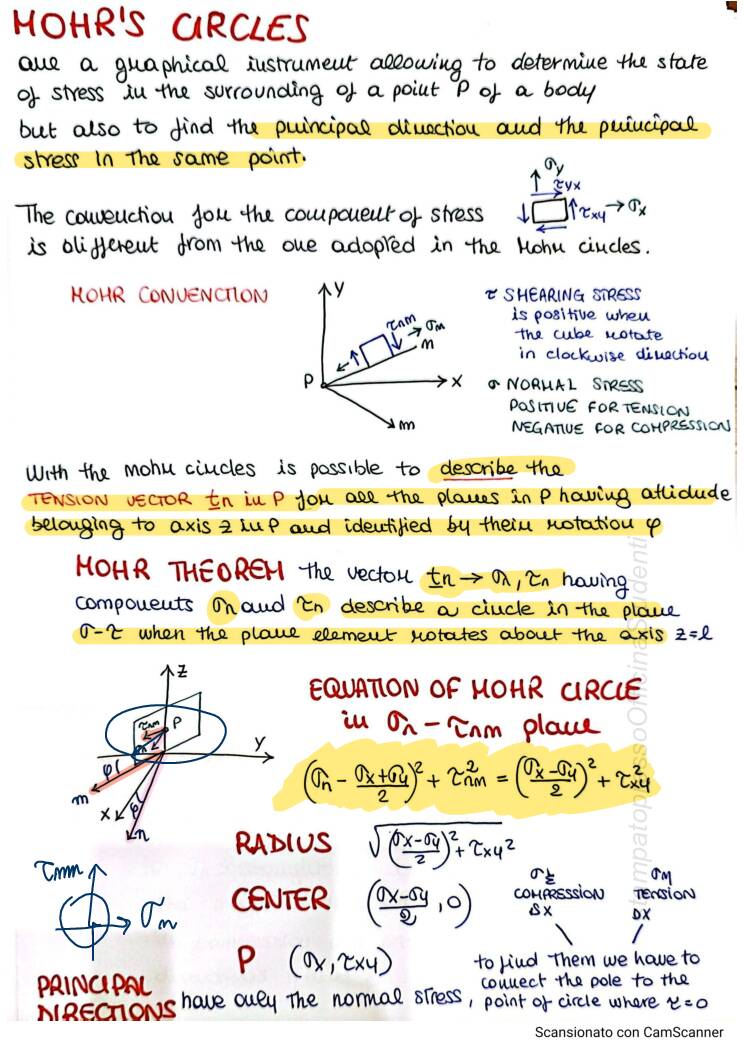 MOHR'S CIRCLES
are a graphical instrument allowing to determine the state
of stress in the surrounding of a point P of a body
but also to find the principal direction and the principal
stress in the same point.
σy
τyx
The convenction for the component of stress
τxy → σx
is different from the one adopted in the Mohr circles.
MOHR CONVENCTION
y
τnm
σm
n
P
x
m
τ SHEARING STRESS
is positive when
the cube rotate
in clockwise direction
σ NORMAL STRESS
POSITIVE FOR TENSION
NEGATIVE FOR COMPRESSION
With the mohr circles is possible to describe the
TENSION VECTOR tn in P for all the planes in P having attidude
belonging to axis z in P and identified by their rotation φ
MOHR THEOREM the vector tn → σn, τn having
components σn and τn describe a circle in the plane
σ-τ when the plane element rotates about the axis z=l
z
τnm
P
y
φ
m
x
φ
n
EQUATION OF MOHR CIRCLE
in σn - τnm plane
(σn - σx+σy/2)² + τ²nm = (σx-σy/2)² + τ²xy
RADIUS √(σx-σy/2)² + τxy²
τmn
σn
CENTER (σx-σy/2, 0)
COMPRESSION
SX
σM
TENSION
DX
P (σx, τxy)
to find them we have to
connect the pole to the
point of circle where τ=0
PRINCIPAL
DIRECTIONS have only the normal stress,
stampatopressoOfficinaStudenti
Scansionato con CamScanner